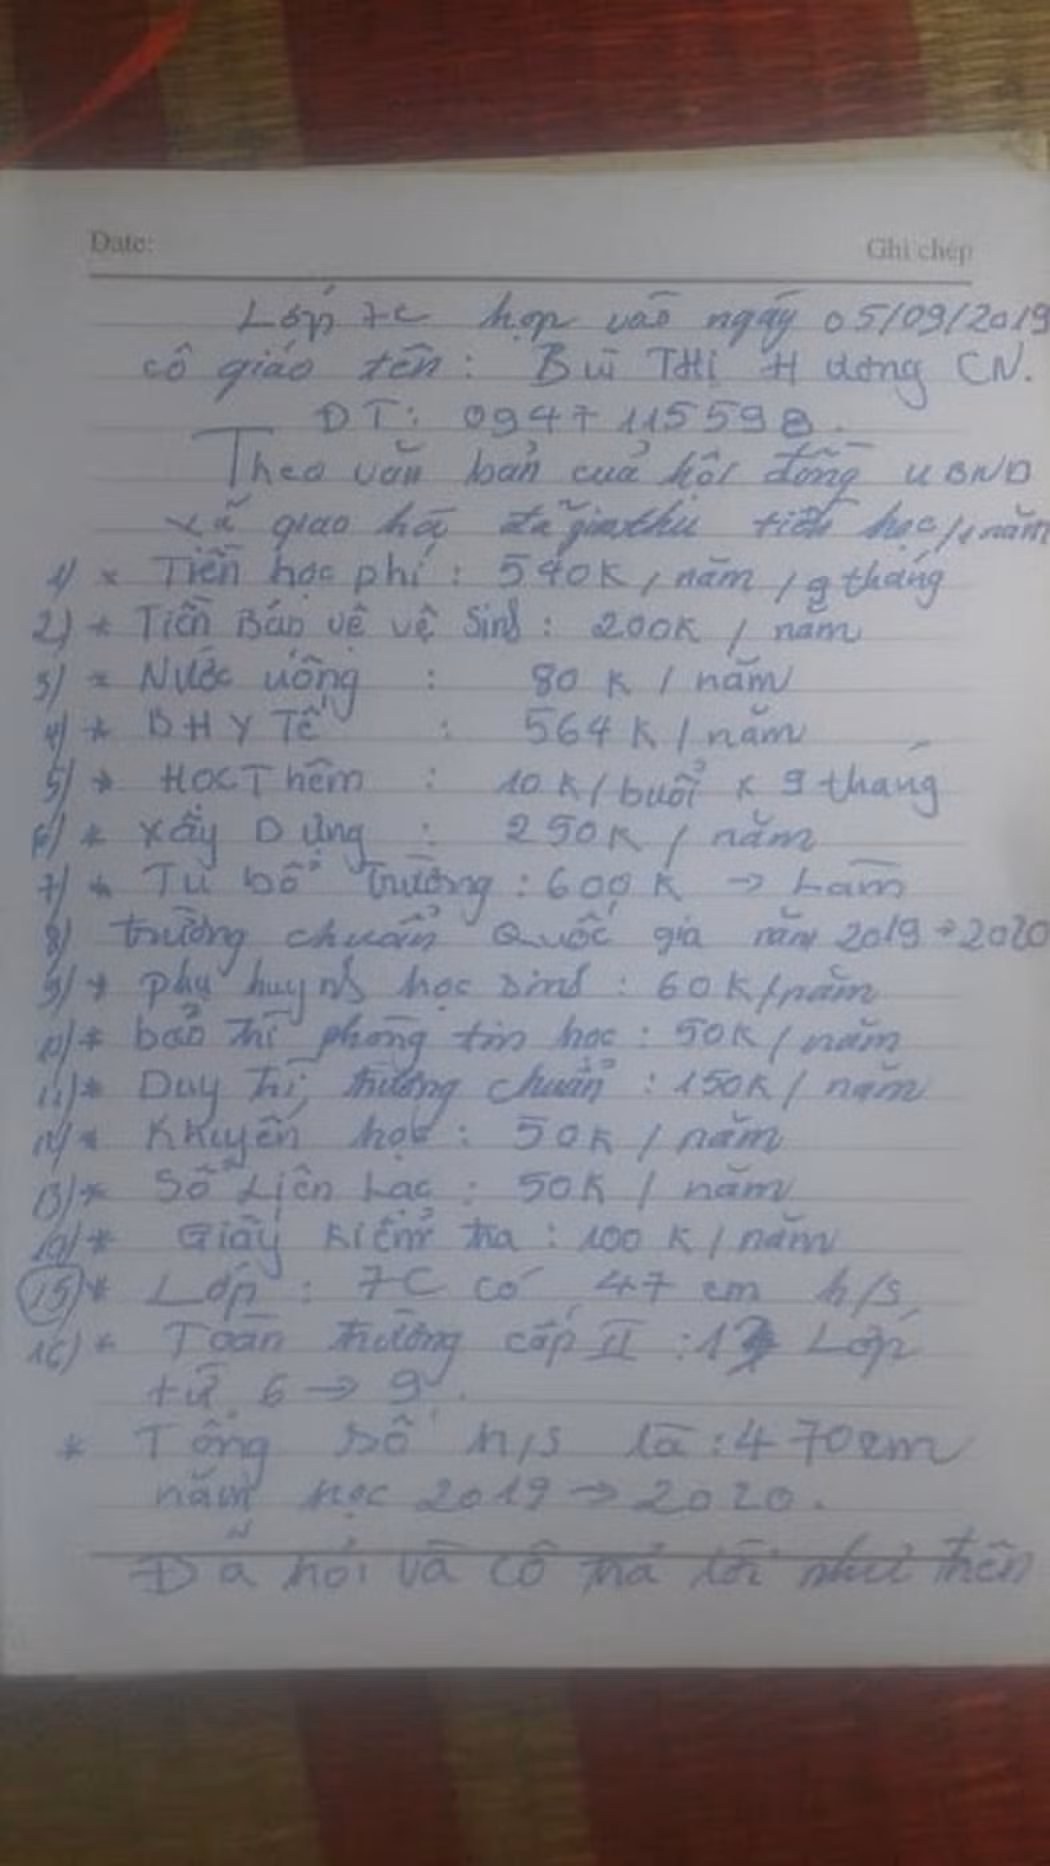 Date: Ghi chép
Lớp 7C họp vào ngày 05/09/2019
cô giáo tên: Bùi Thị Hương CN.
ĐT: 0947115598.
Theo văn bản của hội đồng UBND
xã giao hà đã thu tiền học/1 năm
1) * Tiền học phí: 540K/năm/9 tháng
2) * Tiền Bảo vệ vệ Sinh: 200K/năm
3) * Nước uống: 80K/năm
4) * BHY Tế: 564K/năm
5) * Học Thêm: 10K/buổi x 9 tháng
6) * Xây Dựng: 250K/năm
7) * Tu bổ Trường: 600K → Làm
8) trường chuẩn Quốc gia năm 2019 → 2020
9) * phụ huynh học sinh: 60K/năm
10) * bảo trì phòng tin học: 50K/năm
11) * Duy trì trường chuẩn: 150K/năm
12) * Khuyến học: 50K/năm
13) * Sổ Liên Lạc: 50K/năm
14) * Giấy kiểm tra: 100K/năm
15) * Lớp: 7C có 47 em h/s,
16) * Toàn trường cấp II: Lớp
từ 6 → 9.
* Tổng số h/s là: 470 em
năm học 2019 → 2020.
Đã hỏi và cô trả lời như trên